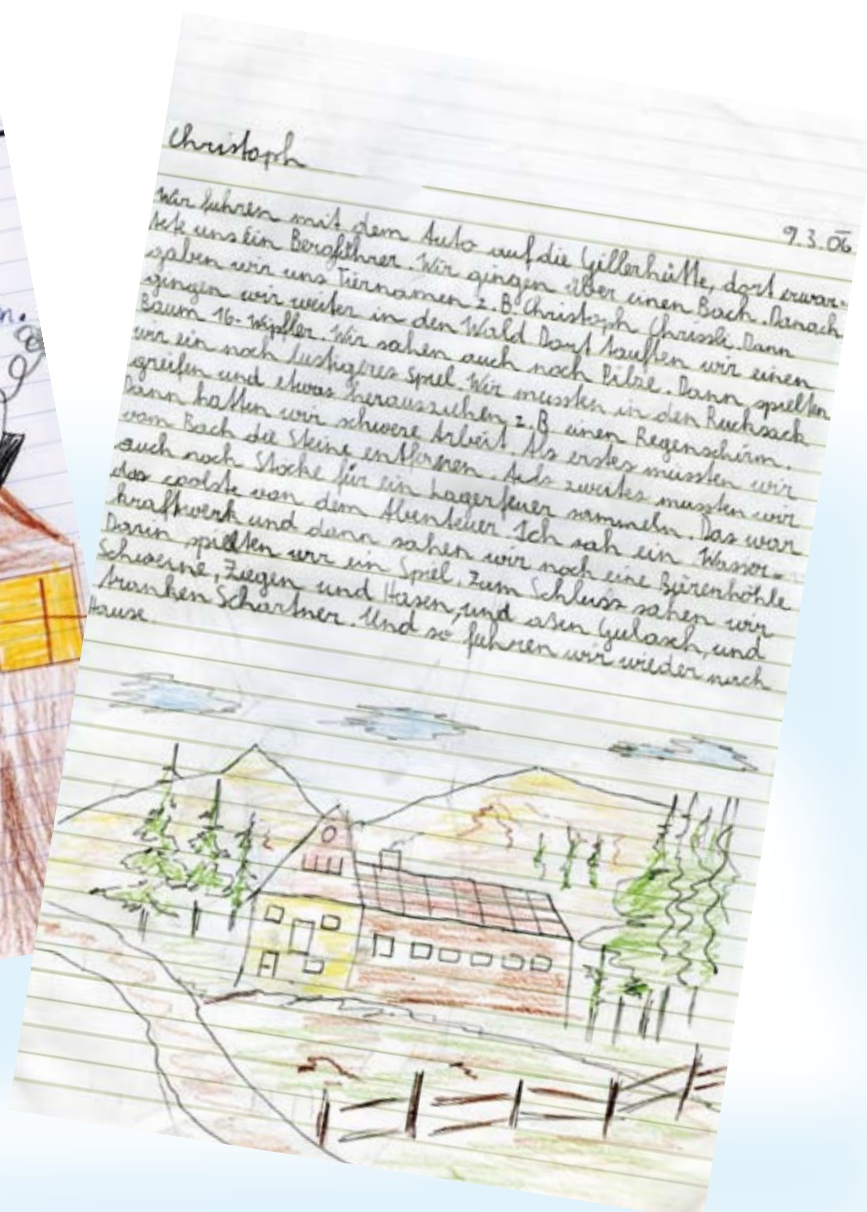 n.
Christoph
9.3.06
Wir fuhren mit dem Auto auf die Gillerhütte, dort erwar-
tete uns ein Bergführer. Wir gingen über einen Bach. Danach
gaben wir uns Tiernamen z.B. Christoph Chrissli. Dann
gingen wir weiter in den Wald Dort tauften wir einen
Baum 16-Wipfler. Wir sahen auch noch Pilze. Dann spielten
wir ein noch lustigeres Spiel. Wir mussten in den Rucksack
greifen und etwas herausziehen z.B einen Regenschirm.
Dann hatten wir schwere Arbeit. Als erstes mussten wir
vom Bach die Steine entfernen Als zweites mussten wir
auch noch Stöcke für ein Lagerfeuer sammeln. Das war
das coolste von dem Abenteuer. Ich sah ein Wasser-
kraftwerk und dann sahen wir noch eine Bärenhöhle
Darin spielten wir ein Spiel. Zum Schluss sahen wir
Schweine, Ziegen und Hasen, und asen Gulasch, und
tranken Schartner. Und so fuhren wir wieder nach
Hause.